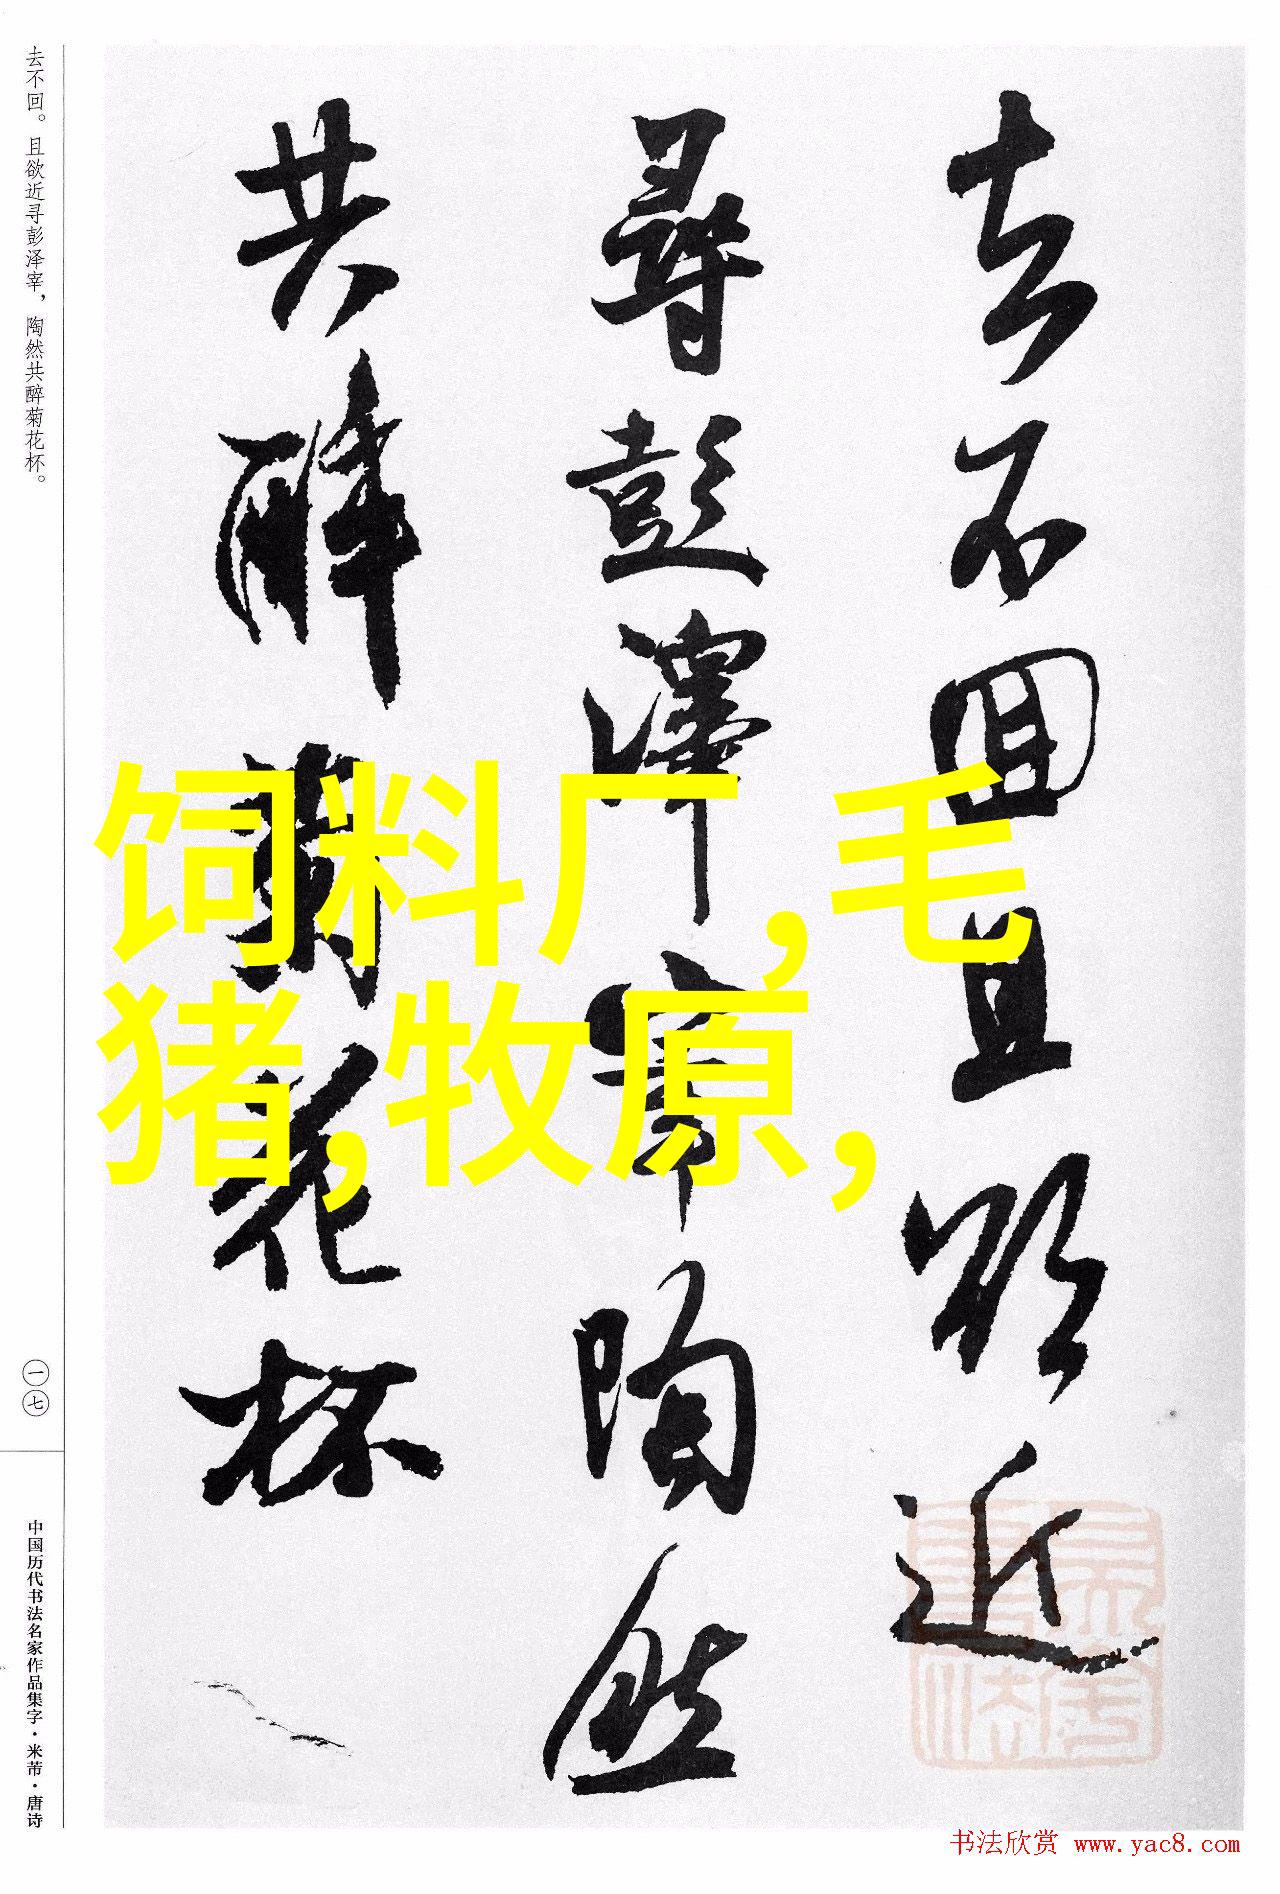 去不回且欲近
尋彭澤宰陶然
共醉菊花杯
饲料厂,毛
猪,牧原,
去不回。且欲近寻彭泽宰，陶然共醉菊花杯。
一七
中国历代书法名家作品集字·米芾·唐诗
书法欣赏 www.yac8.com